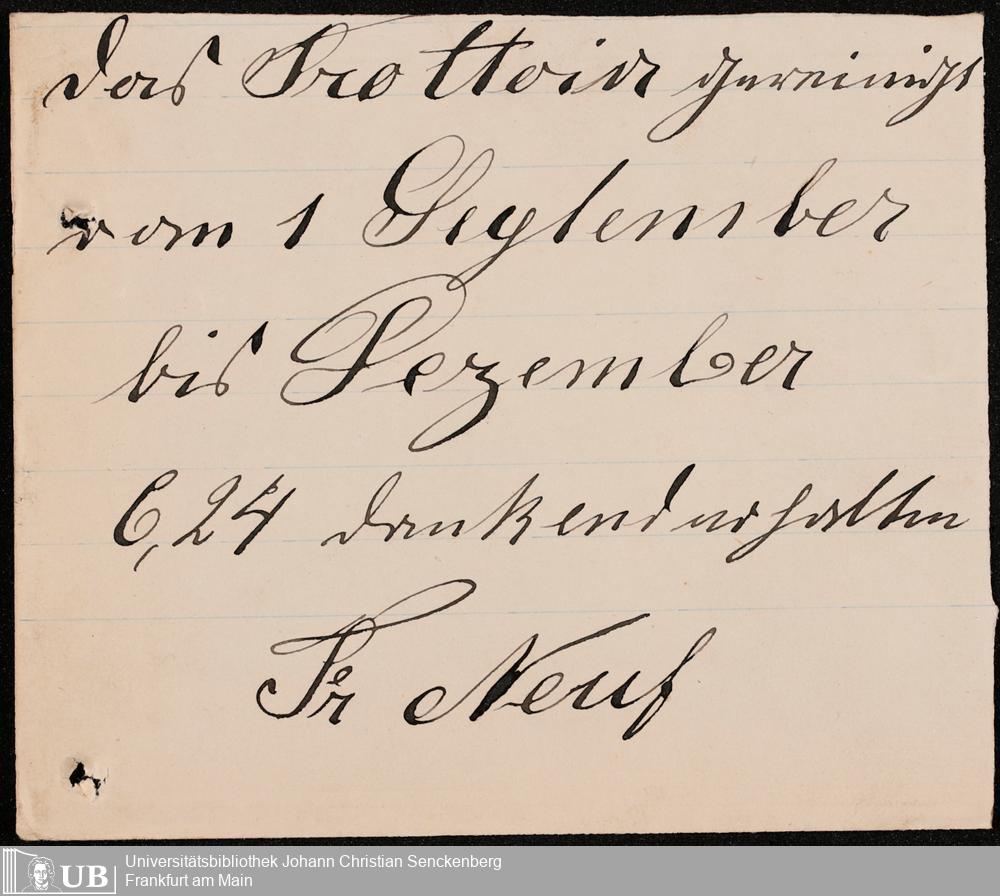 das Trottoir gereinigt
vom 1 September
bis Dezember
6,24 dankend erhalten
Fr Neuf
UB Universitätsbibliothek Johann Christian Senckenberg
Frankfurt am Main